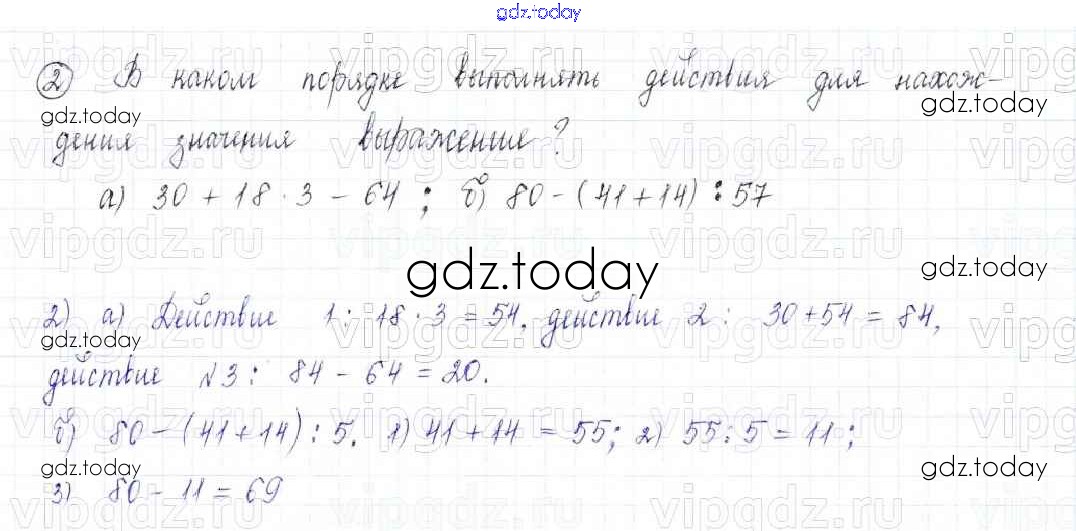 gdz.today
② В каком порядке выполнять действия для нахож-
gdz.today gdz.today
дения значения выражение?
а) 30 + 18 · 3 - 64 ; б) 80 - (41+14) : 57
vipgdz.ru vipgdz.ru vipgdz.ru
gdz.today gdz.today
2) а) Действие 1: 18 · 3 = 54, действие 2: 30+54 = 84,
действие №3: 84 - 64 = 20.
б) 80 - (41+14) : 5. 1) 41+14 = 55; 2) 55:5 = 11;
gdz.today gdz.today
3) 80 - 11 = 69
vipgdz.ru vipgdz.ru vipgdz.ru